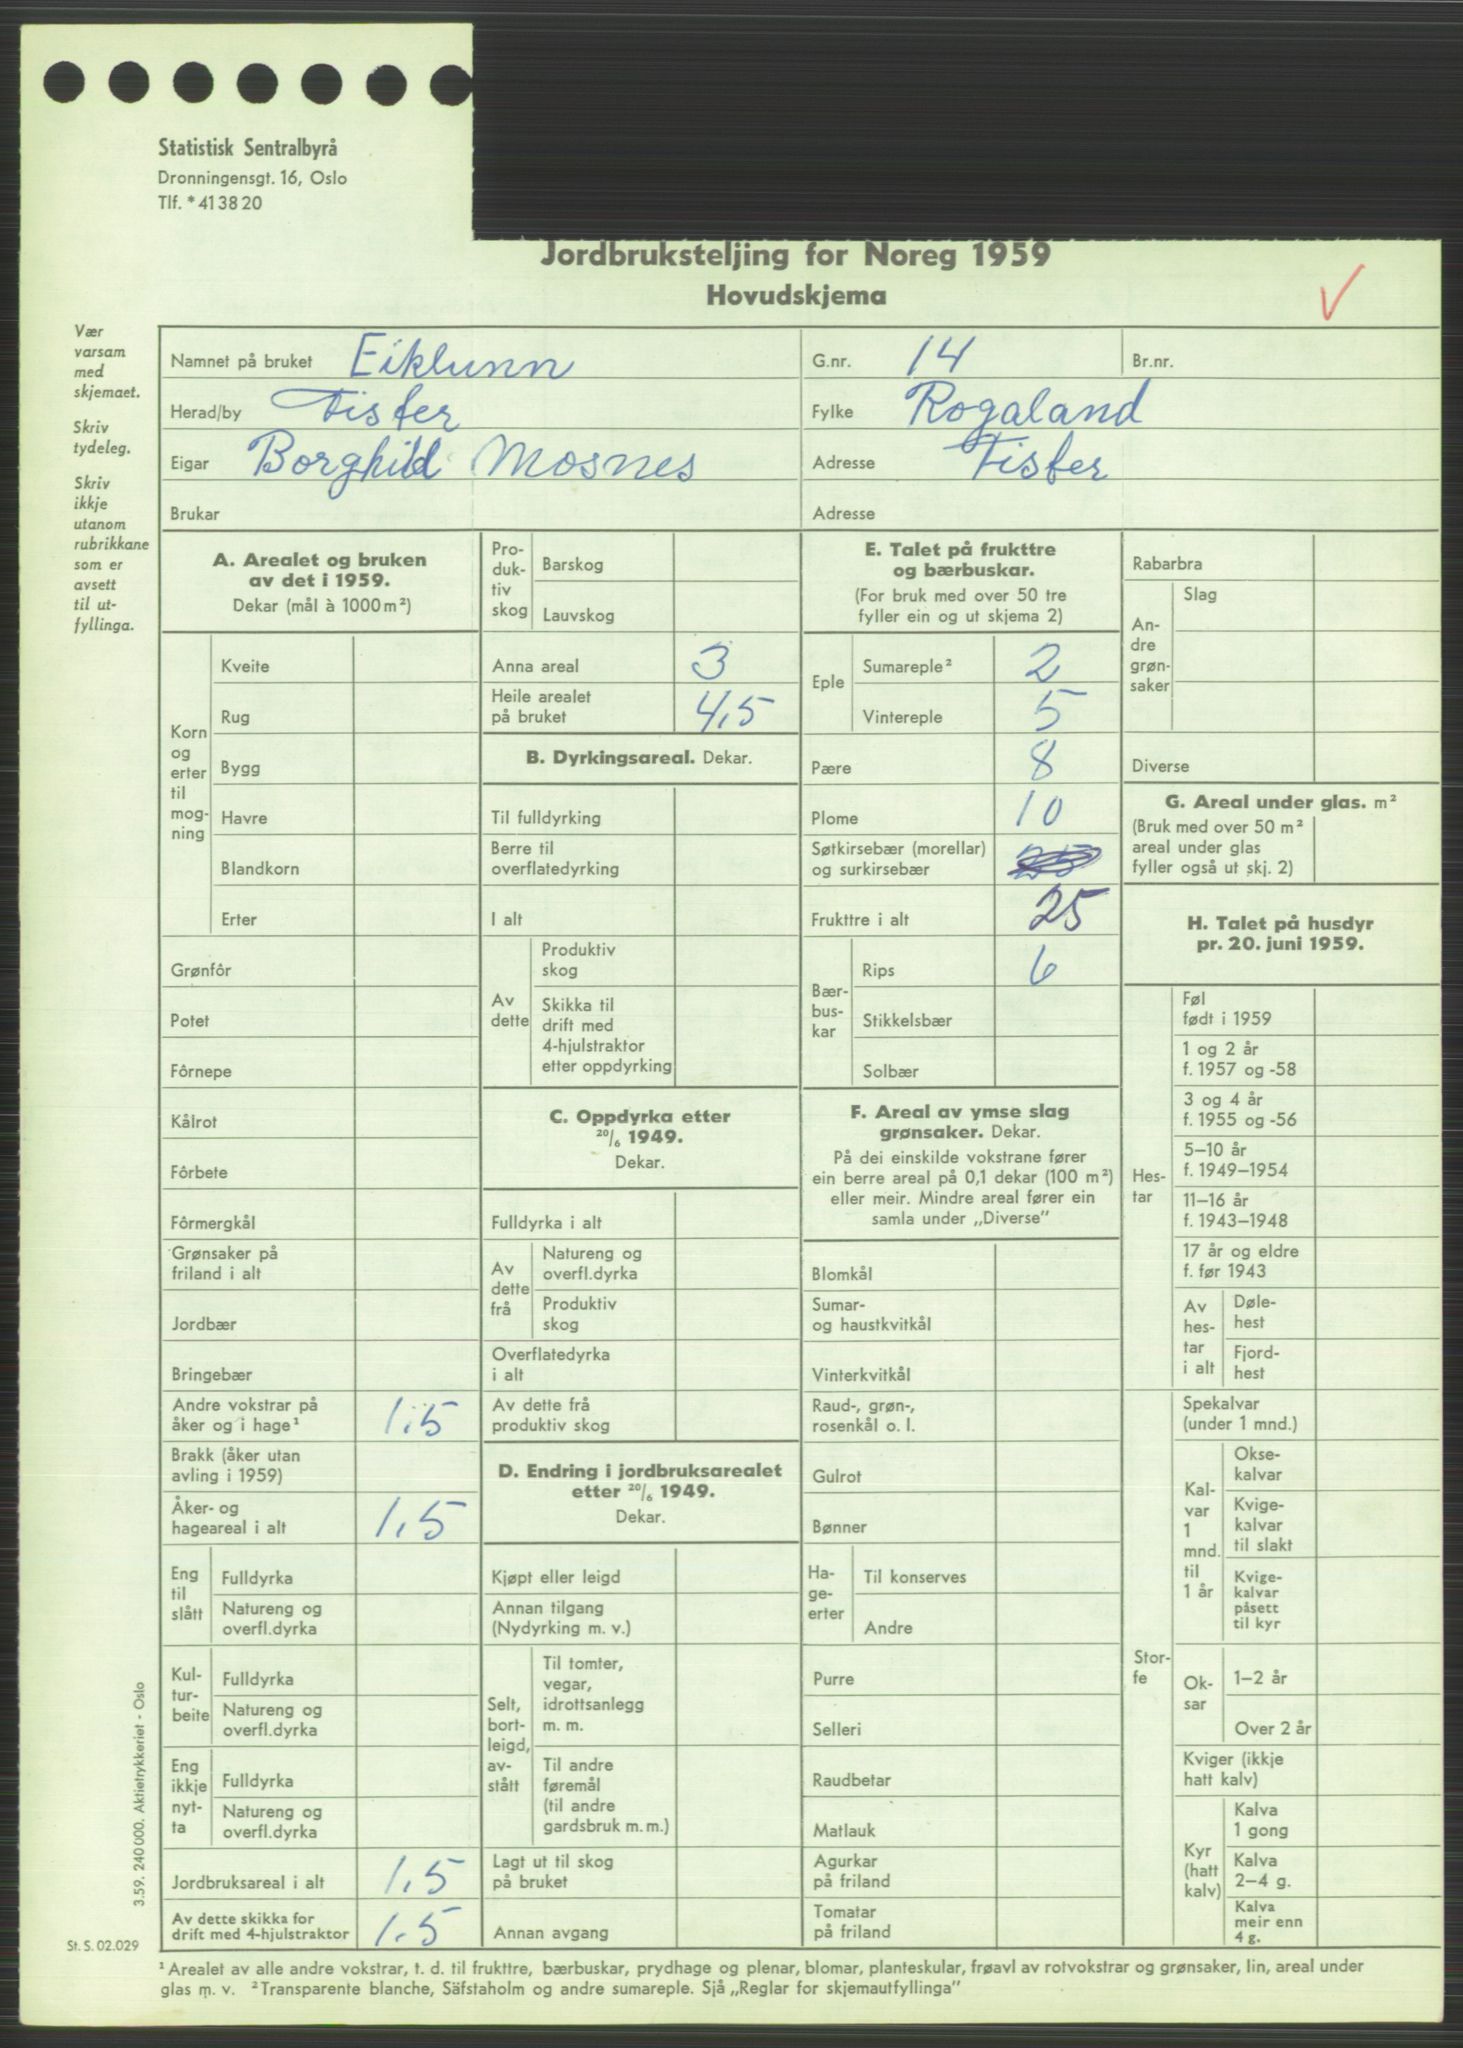 Statistisk Sentralbyrå
Dronningensgt. 16, Oslo
Tlf. * 41 38 20
Jordbruksteljing for Noreg 1959
Hovudskjema
Vær
varsam
med
skjemaet.
Skriv
tydeleg.
Skriv
ikkje
utanom
rubrikkane
som er
avsett
til ut-
fyllinga.
Namnet på bruket Eiklunn G.nr. 14 Br.nr.
Herad/by Fister Fylke Rogaland
Eigar Borghild Mosnes Adresse Fister
Brukar Adresse
A. Arealet og bruken
av det i 1959.
Dekar (mål à 1000 m²)
Korn
og
erter
til
mog-
ning
Kveite
Rug
Bygg
Havre
Blandkorn
Erter
Grønfôr
Potet
Fôrnepe
Kålrot
Fôrbete
Fôrmergkål
Grønsaker på
friland i alt
Jordbær
Bringebær
Andre vokstrar på
åker og i hage¹ 1.5
Brakk (åker utan
avling i 1959)
Åker- og
hageareal i alt 1,5
Eng
til
slått
Fulldyrka
Natureng og
overfl.dyrka
Kul-
tur-
beite
Fulldyrka
Natureng og
overfl.dyrka
Eng
ikkje
nyt-
ta
Fulldyrka
Natureng og
overfl.dyrka
Jordbruksareal i alt 1,5
Av dette skikka for
drift med 4-hjulstraktor 1.5
Pro-
duk-
tiv
skog
Barskog
Lauvskog
Anna areal 3
Heile arealet
på bruket 4,5
B. Dyrkingsareal. Dekar.
Til fulldyrking
Berre til
overflatedyrking
I alt
Av
dette
Produktiv
skog
Skikka til
drift med
4-hjulstraktor
etter oppdyrking
C. Oppdyrka etter
20/6 1949.
Dekar.
Fulldyrka i alt
Av
dette
frå
Natureng og
overfl.dyrka
Produktiv
skog
Overflatedyrka
i alt
Av dette frå
produktiv skog
D. Endring i jordbruksarealet
etter 20/6 1949.
Dekar.
Kjøpt eller leigd
Annan tilgang
(Nydyrking m. v.)
Selt,
bort-
leigd,
av-
stått
Til tomter,
vegar,
idrottsanlegg
m. m.
Til andre
føremål
(til andre
gardsbruk m. m.)
Lagt ut til skog
på bruket
Annan avgang
E. Talet på frukttre
og bærbuskar.
(For bruk med over 50 tre
fyller ein og ut skjema 2)
Eple
Sumareple² 2
Vintereple 5
Pære 8
Plome 10
Søtkirsebær (morellar)
og surkirsebær
Frukttre i alt 25
Bær-
bus-
kar
Rips 6
Stikkelsbær
Solbær
F. Areal av ymse slag
grønsaker. Dekar.
På dei einskilde vokstrane fører
ein berre areal på 0,1 dekar (100 m²)
eller meir. Mindre areal fører ein
samla under „Diverse”
Blomkål
Sumar-
og haustkvitkål
Vinterkvitkål
Raud-, grøn-,
rosenkål o. l.
Gulrot
Bønner
Ha-
ge-
erter
Til konserves
Andre
Purre
Selleri
Raudbetar
Matlauk
Agurkar
på friland
Tomatar
på friland
Rabarbra
An-
dre
grøn-
saker
Slag
Diverse
G. Areal under glas. m²
(Bruk med over 50 m²
areal under glas
fyller også ut skj. 2)
H. Talet på husdyr
pr. 20. juni 1959.
Hes-
tar
Føl
født i 1959
1 og 2 år
f. 1957 og -58
3 og 4 år
f. 1955 og -56
5–10 år
f. 1949–1954
11–16 år
f. 1943–1948
17 år og eldre
f. før 1943
Av
hes-
tar
i alt
Døle-
hest
Fjord-
hest
Stor-
fe
Spekalvar
(under 1 mnd.)
Kal-
var
1
mnd.
til
1 år
Okse-
kalvar
Kvige-
kalvar
til slakt
Kvige-
kalvar
påsett
til kyr
Ok-
sar
1–2 år
Over 2 år
Kviger (ikkje
hatt kalv)
Kyr
(hatt
kalv)
Kalva
1 gong
Kalva
2–4 g.
Kalva
meir enn
4 g.
3.59. 240 000. Aktietrykkeriet - Oslo
St. S. 02.029
¹ Arealet av alle andre vokstrar, t. d. til frukttre, bærbuskar, prydhage og plenar, blomar, planteskular, frøavl av rotvokstrar og grønsaker, lin, areal under
glas m. v. ² Transparente blanche, Säfstaholm og andre sumareple. Sjå „Reglar for skjemautfyllinga”